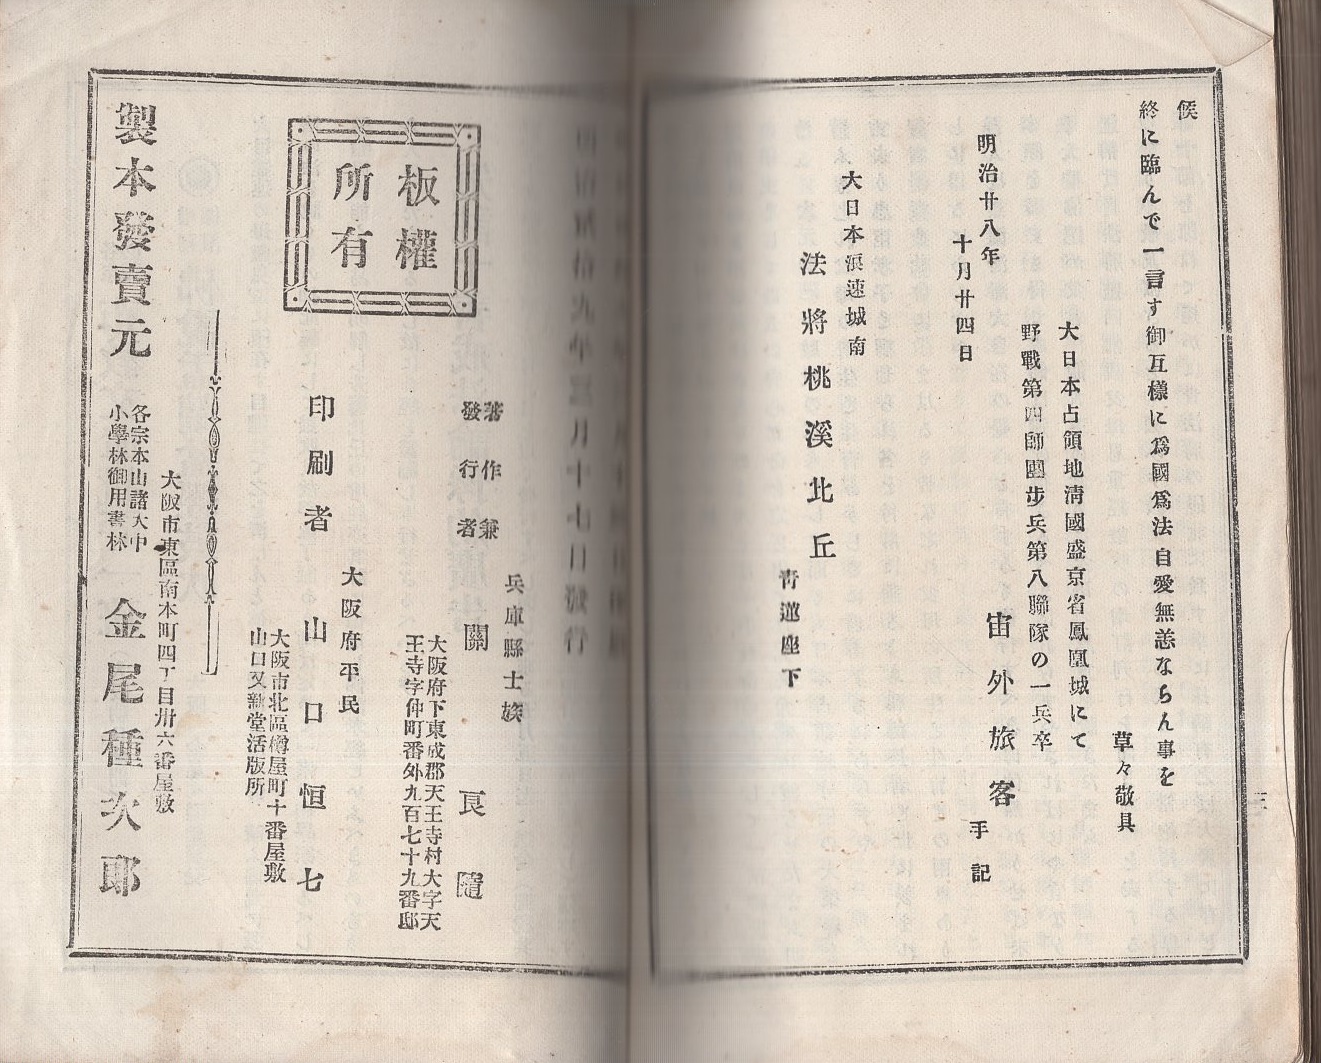 候
終に臨んで一言す御互樣に爲國爲法自愛無恙ならん事を
草々敬具
大日本占領地淸國盛京省鳳凰城にて
野戰第四師團步兵第八聯隊の一兵卒
宙外旅客
手記
明治廿八年
十月廿四日
大日本浪速城南
法將桃溪北丘
靑蓮座下
三
年四月十七日發行
兵庫縣士族
著作兼
發行者
關
良隨
大阪府下東成郡天王寺村大字天
王寺字仲町番外九百七十九番邸
板權
所有
大阪府平民
印刷者
山口恒七
大阪市北區樽屋町十番屋敷
山口又新堂活版所
大阪市東區南本町四丁目卅六番屋敷
製本發賣元
各宗本山諸大中
小學林御用書林
金尾種次郎